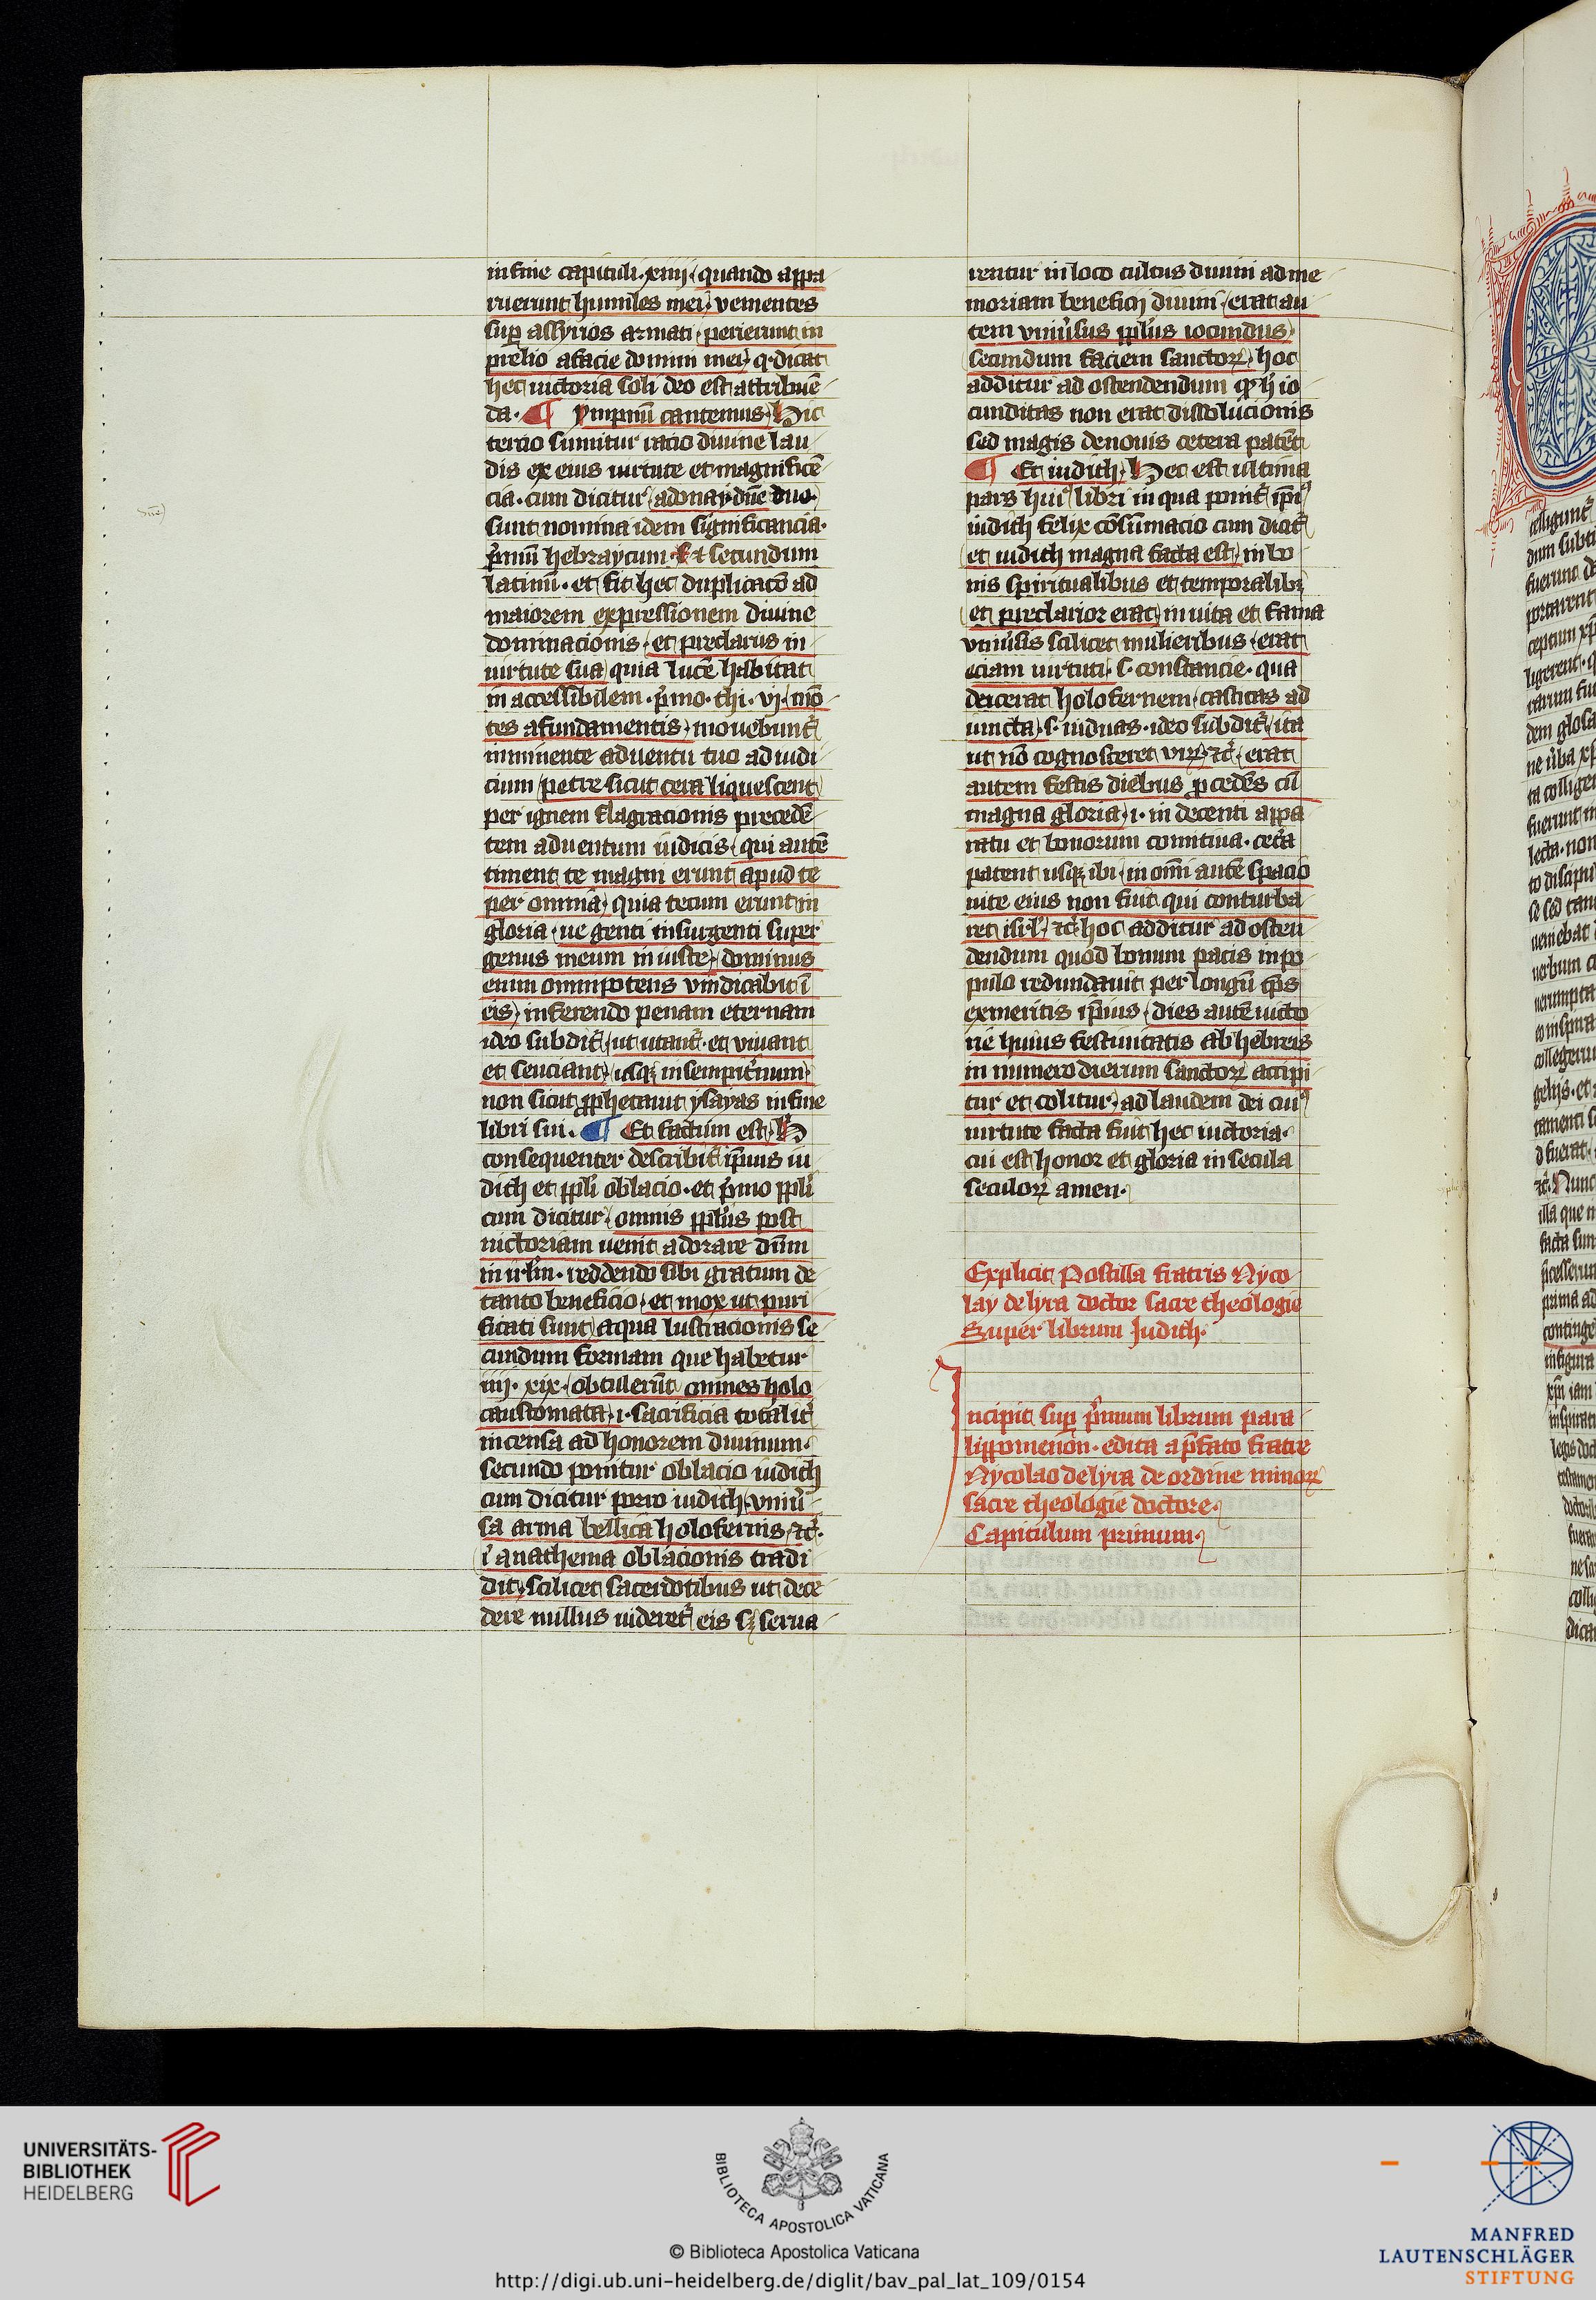 in fine capituli · xiiij · quando appa
ruerunt humiles mei · venientes
sup assyrios armati · perierunt in
prelio a facie domini mei · q · dicat
hec uictoria soli deo est attribuē
da · ¶ ympnū cantemus · Hic
tercio sumitur racio diuine lau
dis ex eius uirtute et magnificē
cia · cum dicitur adonay dn̄e duo
sunt nomina idem significancia ·
pͥmū hebraycum · et secundum
latinū · et fit hec duplicacō ad
maiorem expressionem diuine
dominacionis · et preclarus in
uirtute sua quia lucē habitat
in accessibilem · pͥmo · thi · vj · mō
tes a fundamentis mouebunt̄
imminente aduentu tuo ad iudi
cium petre sicut cera liquescent
per ignem flagracionis precedē
tem aduentum iudicis · qui autē
timent te magni erunt apud te
per omnia · quia tecum erunt in
gloria · ue genti insurgenti super
genus meum in iuste · dominus
enim omnipotens vindicabit ī
eis inferendo penam eternam
ideo subdit̄ ut utant̄ · et viuant
et senciant usqꝫ in sempit̄num
non sicut ꝓphetauit ysayas in fine
libri sui . ¶ Et factum est · H
consequenter describit̄ ip̄ius iu
dich et ppl̄i oblacio · et pͥmo ppl̄i
cum dicitur omnis ppl̄us post
uictoriam uenit adorare dūm
in irl̄m · reddendo sibi gratum de
tanto beneficio · et mox ut puri
ficati sunt aqua lustracionis se
cundum formam que habetur
iiij · xix · obtulerūt omnes holo
caustomata · i · sacrificia totalit̄
incensa ad honorem diuinum ·
secundo ponitur oblacio iudich
cum dicitur porro iudich vniū
sa arma bellica holofernis ⁊c̄ ·
ī anathema oblacionis tradi
dit scilicet sacerdotibus ut dece
dere nullus uideret̄ eis sꝫ serua
rentur in loco cultus diuini ad me
moriam beneficij diuini · erat au
tem vniūsus ppl̄us iocundus
secundum faciem sanctoꝝ · hoc
additur ad ostendendum qꝫ h̄ io
cunditas non erat dissolucionis
sed magis denouis cetera patēt
¶ Et iudich · Hec est ultima
pars huiꝰ libri in qua ponit̄ ip̄iꝰ
iudich felix cōsūmacio cum dicit̄
et iudich magna facta est in bo
nis spiritualibus et temporalibꝫ
et preclarior erat in uita et fama
vniūsis scilicet mulieribus · erat
eciam uirtuti · s · constancie · qua
deicerat holofernem · castitas ad
iuncta · s · uiduas · ideo subdit̄ · ita
ut nō cognosceret viꝝ ⁊c̄ · erat
autem festis diebus ꝓcedēs cū
magna gloria · i · in decenti appa
ratu et bonorum comitiua · cet̄a
patent usqꝫ ibi · in omī autē spacio
uite eius non fuit qui conturba
ret isrl̄ ⁊c̄ hoc additur ad osten
dendum quod bonum pacis in po
pulo redundauit per longū tp̄s
ex meritis ip̄ius · dies autē uicto
rie huius festiuitatis ab hebreis
in numero dierum sanctoꝝ accipi
tur et colitur ad laudem dei cuiꝰ
uirtute facta fuit hec uictoria ·
cui est honor et gloria in secula
seculoꝝ amen ·
Explicit Postilla fratris Nyco
lay de lyra doctor sacre theologie
Super librum Judich ·
Incipit sup pͥmum librum para
lippomenon · edita a p̄fato fratre
Nycolao de lyra de ordine minoꝝ
sacre theologie doctore ·
Capitulum primum ·
UNIVERSITÄTS-
BIBLIOTHEK
HEIDELBERG
BIBLIOTECA APOSTOLICA VATICANA
© Biblioteca Apostolica Vaticana
http://digi.ub.uni-heidelberg.de/diglit/bav_pal_lat_109/0154
MANFRED
LAUTENSCHLÄGER
STIFTUNG